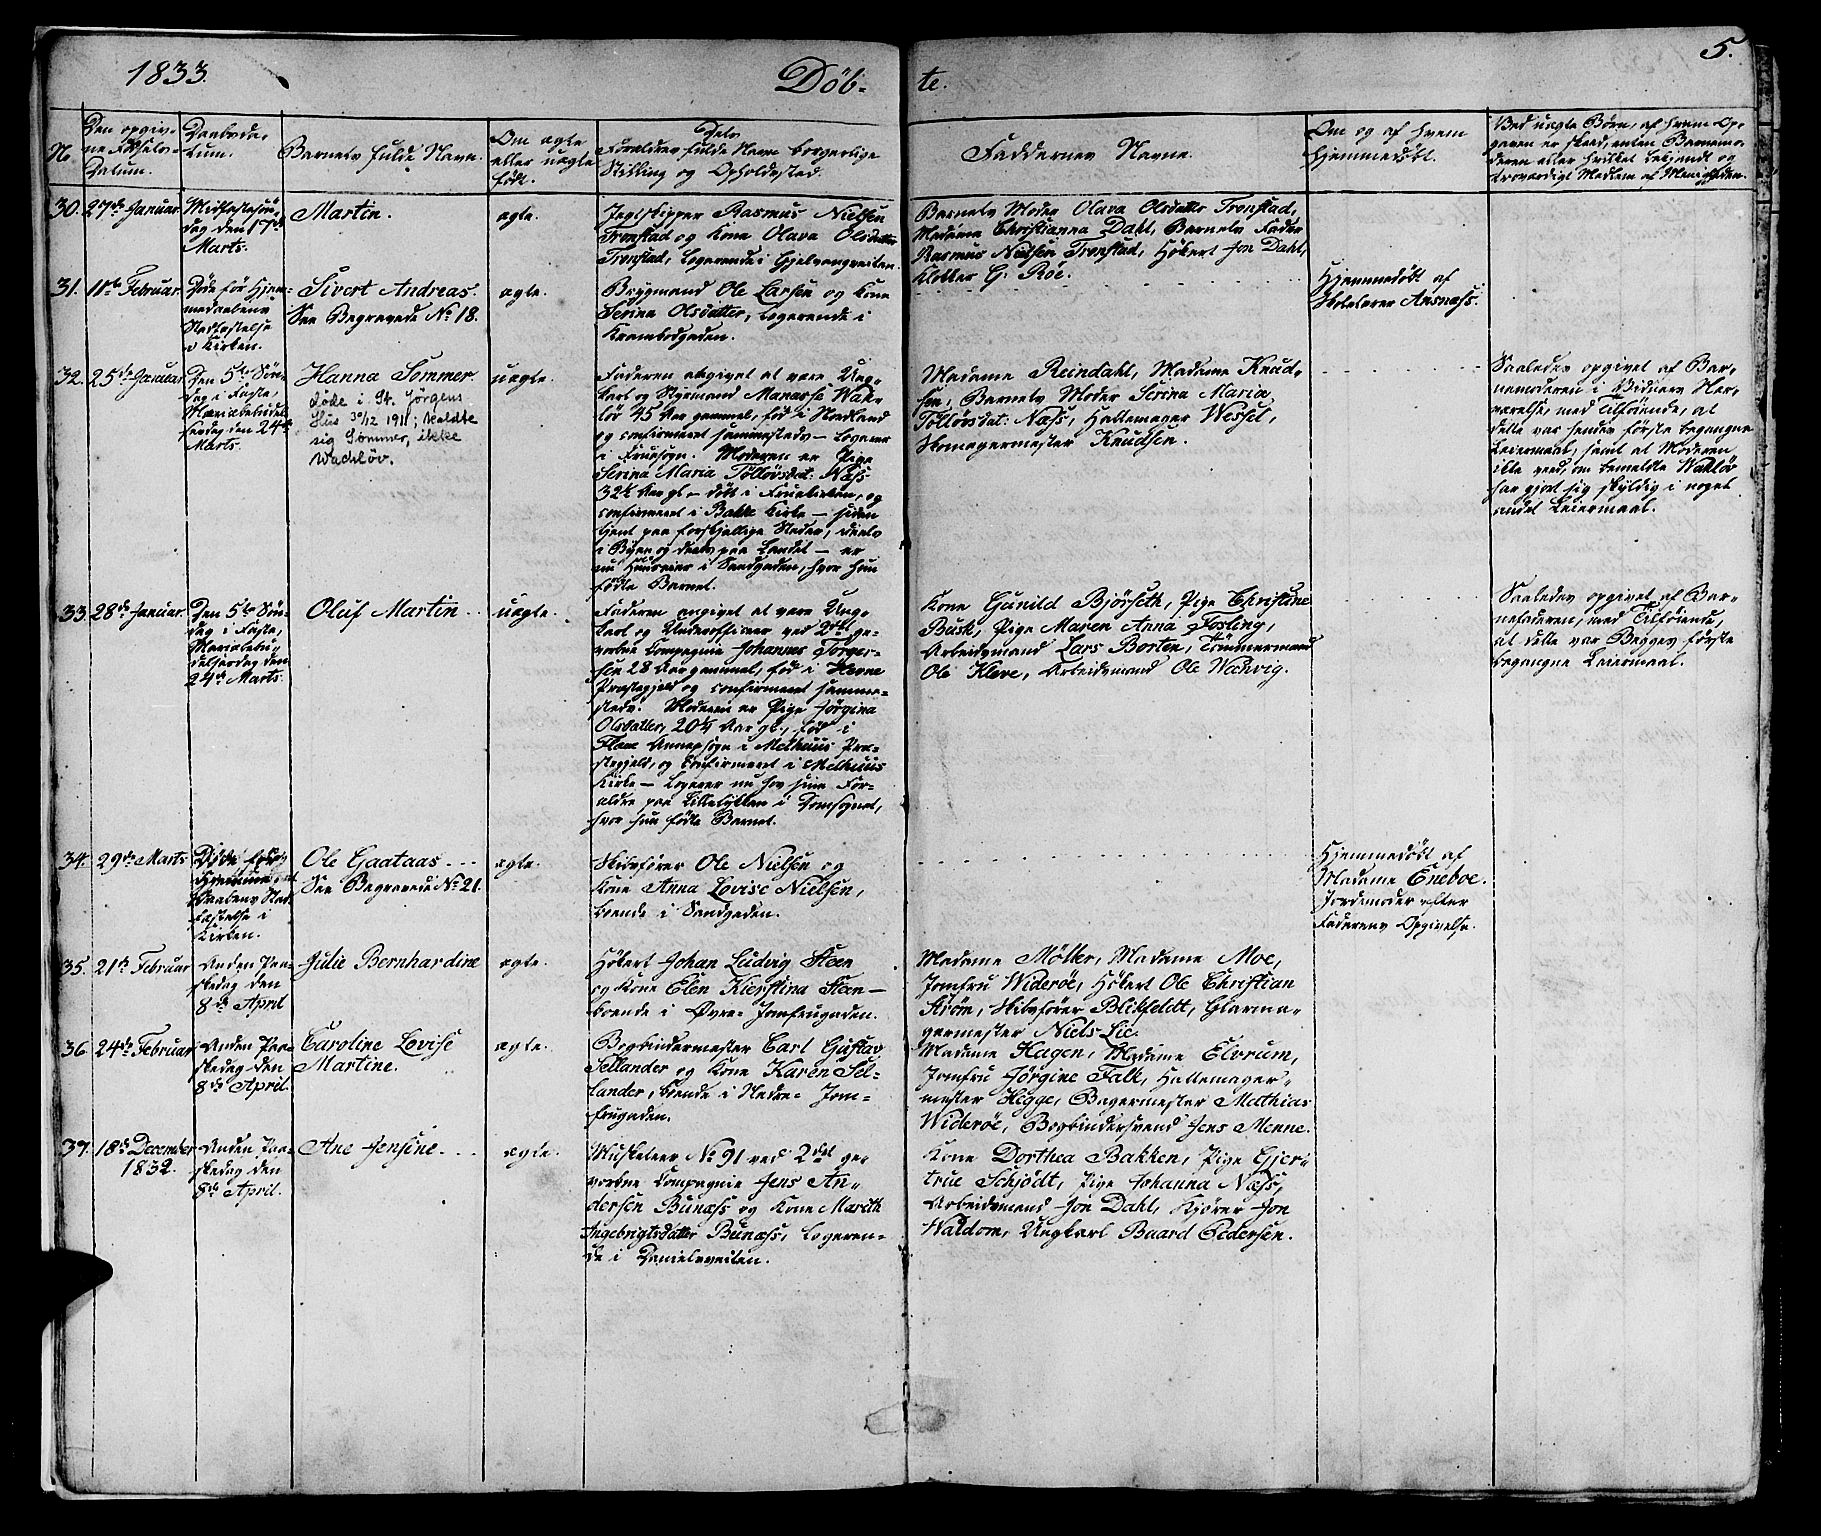 1833.
Döb-
te.
5.
No
Den opgiv-
ne Födsels-
Datum.
Daabsda-
tum.
Barnets fulde Navn.
Om ægte
eller uægte
födt.
Dets
Forældres fulde Navn borgerlige
Stilling og Opholdssted.
Faddernes Navne.
Om og af hvem
hjemmedöbt.
Ved uægte Börn, af hvem Op-
gaven er skeed, enten Barnemo-
deren eller hvilket bekjendt og
troværdigt Medlem af Menigheden.
30.
27de Januar.
Midfastesön-
dag den 17de
Marts.
Martin.
ægte.
Jægtskipper Rasmus Nielsen
Tronstad og Kone Olava Olsdatter
Tronstad, logerende i Gjelvangveiten.
Barnets Moder Olava Olsdatter Tronstad,
Madame Christianna Dahl, Barnets Fader
Rasmus Nielsen Tronstad, Hökert Jon Dahl,
Klokker G. Roe.
31.
11te Februar.
Döde för Hjem-
medaabens
Stadfæstelse
i Kirken.
Sivert Andreas.
See Begravede No 18.
ægte.
Brygmand Ole Larsen og Kone
Serina Olsdatter, logerende i
Krambodgaden.
Hjemmedöbt af
Skolelærer Aasnæss.
32.
25de Januar
Den 5te Sön-
dag i Faste,
Mariæbebudel-
sesdag den 24de
Marts.
Hanna Sommer.
Döde i St. Jörgens
Hus 30/12 1911; kaldte
sig Sommer, ikke
Wacklöv.
uægte.
Faderen opgivet at være Ung-
karl og Styrmand Manasse Wak-
lör 45 Aar gammel, föd i Stadland
og confirmeret sammesteds - logerer
i Fruesogn. Moderen er Pige
Serina Maria Tollövsdat: Næss
32½ Aar gl. - döbt i Fruekirken, og
confirmeret i Bakke Kirke - siden
tjent paa forskjellige Steder, deels
i Byen og deels paa Landet - er
nu Huusleier i Sandgaden, hvor hun
födte Barnet.
Madame Reindahl, Madame Knud-
sen, Barnets Moder Serina Maria
Tollövsdat: Næss, Hattemager Wessel,
Skomagermester Knudsen.
Saaledes opgivet af Bar-
nemoderen i Vidners Nær-
værelse, med Tilföiende, at
dette var hendes förste begangne
Leiermaal, samt at Moderen
ikke veed, om bemeldte Waklör
har gjort sig skyldig i noget
andet Leiermaal.
33.
28de Januar.
Den 5te Sön-
dag i Faste,
Mariæbebu-
delsesdag den
24de Marts.
Oluf Martin
uægte.
Faderen angivet at være Ung-
karl og Underofficer ved 2det ge-
vorbne Compagnie Johannes Torger-
sen 28 Aar gammel, föd i Hevne
Præstegjeld og confirmeret samme-
steds. Moderen er Pige Jörgina
Olsdatter, 20½ Aar gl., föd i
Flaae Annexsogn i Melhuus Præ-
stegjeld, og confirmeret i Melhuus
Kirke - logerer nu hos sine For-
ældre paa Lillebytten i Domsognet,
hvor hun födte Barnet.
Kone Gunild Björseth, Pige Christine
Busk, Pige Maren Anna Fosling,
Arbeidsmand Lars Borten, Tömmermand
Ole Kleve, Arbeidsmand Ole Wedvig.
Saaledes opgivet af Bar-
nefaderen, med Tilföiende,
at dette var Begges förste
begangne Leiermaal.
34.
29de Marts
Döde för
Hjemme-
daabens Stad-
fæstelse i
Kirken.
Ole Gaataas
See Begravede No 21.
ægte.
Skibsförer Ole Nielsen og
Kone Anna Lovise Nielsen,
boende i Sandgaden.
Hjemmedöbt af
Madame Eneboe.
Jordemoder efter
Faderens Opgivelse.
35.
21de Februar
Anden Paa-
skedag den
8de April
Julie Bernhardine
ægte.
Hökert Johan Ludvig Steen
og Kone Elen Kierstina Steen -
boende i Övre- Jomfrugaden.
Madame Möller, Madame Moe,
Jomfru Wideröe, Hökert Ole Christian
Ström, Skibsförer Blikfeldt, Glarma-
germester Niels Lie.
36
24de Februar
Anden Paa-
skedag den
8de April.
Caroline Lovise
Martine.
ægte.
Bogbindermester Carl Gustav
Sellander og Kone Karen Sel-
lander, boende i Nedre- Jom-
frugaden.
Madame Hagen, Madame Elvrum,
Jomfru Jörgine Falk, Hattemager-
mester Hegge, Bagermester Mathias
Wideröe, Bogbindersvend Jens Menne.
37.
18de December
1832.
Anden Paa-
skedag den
8de April.
Ane Jensine.
ægte.
Musketeer No 91 ved 2det ge-
vorbne Compagnie Jens An-
dersen Bunæss og Kone Marith
Ingebrigtsdatter Bunæss, logeren-
de i Danielsveiten.
Kone Dorthea Bakken, Pige Gjer-
true Schjödt, Pige Johanna Næss,
Arbeidsmand Jon Dahl, Kjörer Jon
Waldom, Ungkarl Baard Pedersen.